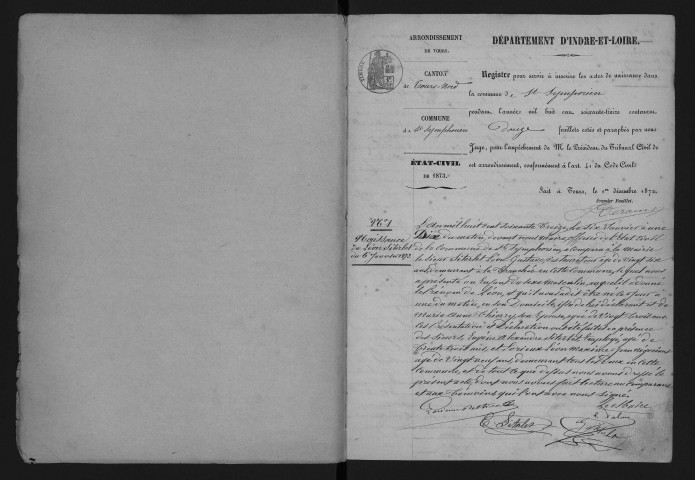 ARRONDISSEMENT
DE TOURS.
CANTON
de Tours-Nord
COMMUNE
de St Symphorien
ÉTAT-CIVIL
DE 1873.
DÉPARTEMENT D'INDRE-ET-LOIRE.
Registre pour servir à inscrire les actes de naissance dans
la commune de St Symphorien
pendant l'année mil huit cent soixante-treize contenant
Douze feuillets cotés et paraphés par nous
Juge, pour l'empêchement de M. le Président du Tribunal Civil de
cet arrondissement, conformément à l'art. 41 du Code Civil
Fait à Tours, le 1er décembre 1872
Premier Feuillet.
No 1
Naissance
de Léon
du 6 Janvier 1873
L'an mil huit cent soixante Treize, le six Janvier à une
du matin, devant nous Maire officier de l'état civil
de la Commune de St Symphorien, a comparu à la mairie
le sieur Léon Gustave, âgé de vingt six
ans demeurant à la Tranchée en cette Commune, lequel nous
a présenté un Enfant du sexe Masculin, auquel il a donné
le prénom de Léon, et qu'il nous a dit être né ce jour à
une du matin, en son Domicile, fils de lui déclarant et de
Marie Anne Thierry son Epouse, âgée de Vingt trois ans
Les Présentation et Déclaration ont été faites en présence
des Sieurs, Eugène Alexandre Employé, âgé de
Trente trois ans, et Léon Maxime
âgé de Vingt neuf ans, demeurant tous les Deux en cette
Commune, et de tout ce que dessus nous avons dressé le
présent acte, dont nous avons fait lecture au Comparant
et aux Témoins qui l'ont avec nous Signé.